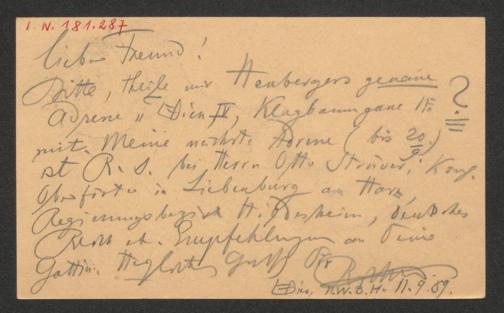 I. N. 181.287
Lieber Freund!
Bitte, theile mir Heubergers genaue
Adresse „ Wien IV, Klagbaumgasse 15 ?!!
mit. Meine nächste Adresse (bis 20./9.)
ist R. S. bei Herrn Otto Strüver, Kön.
Oberförster in Liebenburg am Harz,
Regierungsbezirk Hildesheim, Deutsches
Reich etc. Empfehlungen an Deine
Gattin. Herzlichen Gruß Dir
Wien, 11.9.89.